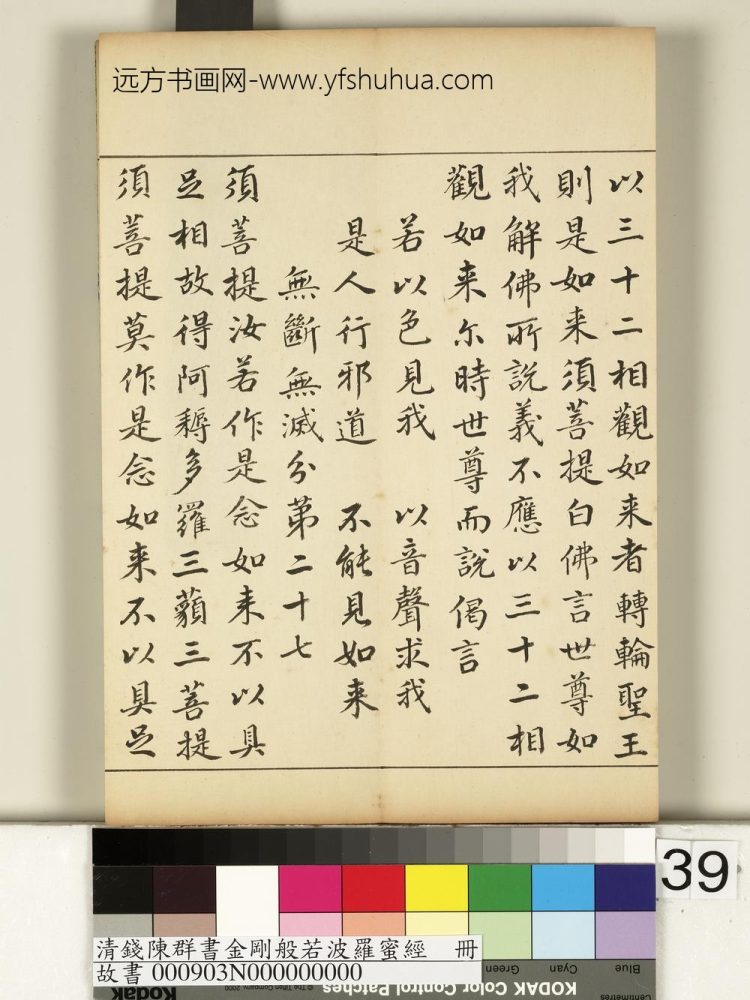 远方书画网-www.yfshuhua.com
以三十二相觀如来者轉輪聖王
則是如来須菩提白佛言世尊如
我解佛所說義不應以三十二相
觀如来尔時世尊而說偈言
若以色見我 以音聲求我
是人行邪道 不能見如来
無斷無滅分第二十七
須菩提汝若作是念如来不以具
足相故得阿耨多羅三藐三菩提
須菩提莫作是念如来不以具足
39
清錢陳群書金剛般若波羅蜜經 冊
故書 000903N000000000
Green Cyan Blue
Kodak
© The Tiffen Company, 2000
KODAK Color Control Patches
Centimetres